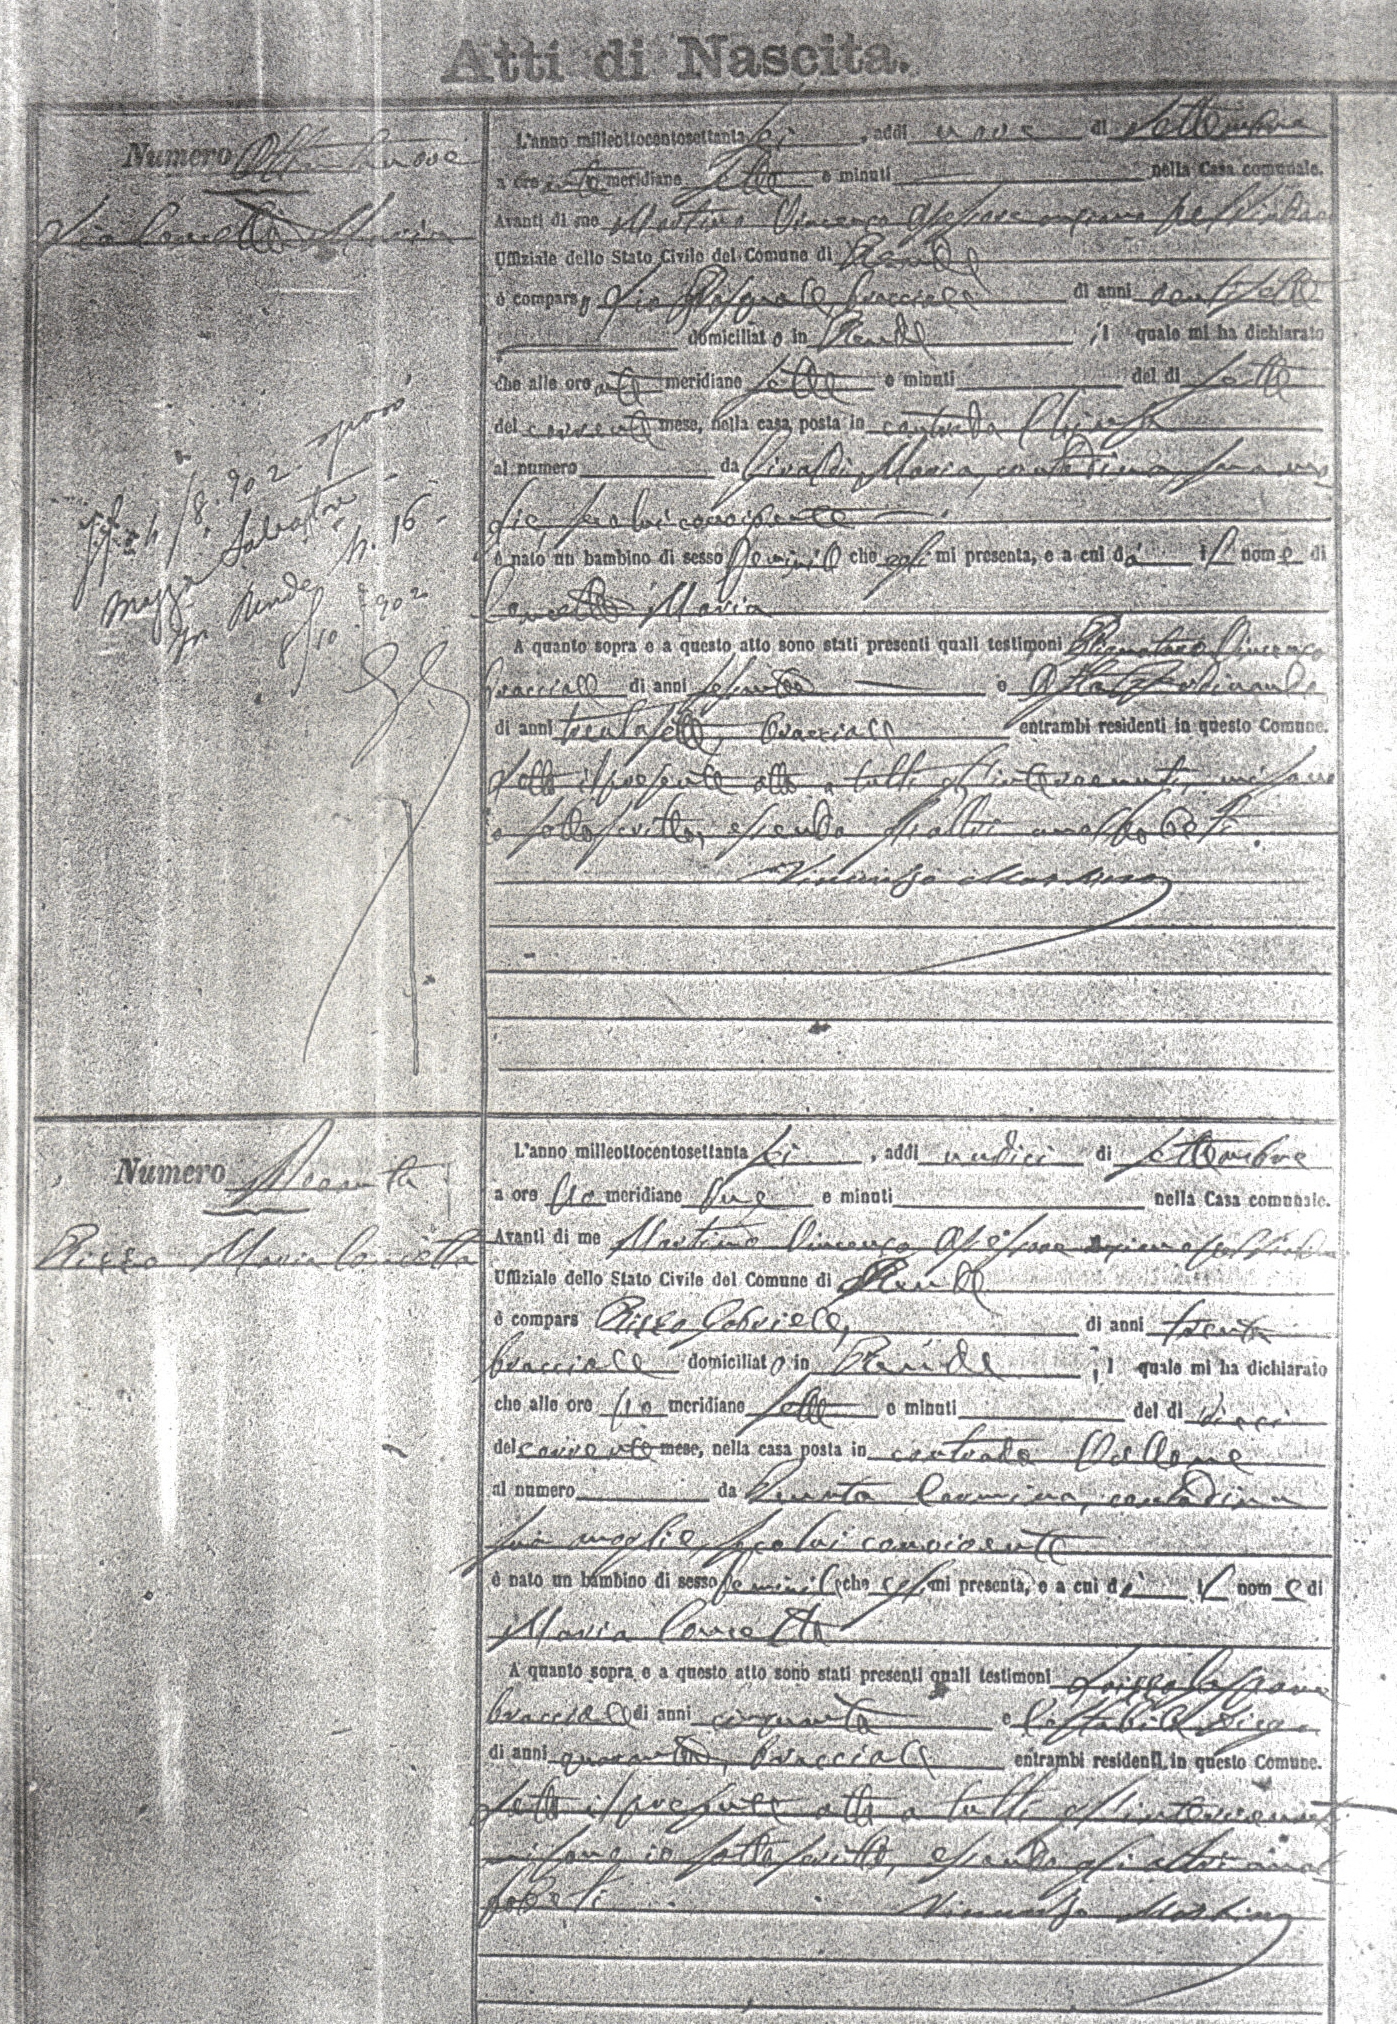 Atti di Nascita.
Numero
Concetta Maria
L'anno milleottocentosettanta sei, addì nove di Settembre
a ore meridiane sette e minuti nella Casa comunale.
Avanti di me Martino Vincenzo Assessore
Uffiziale dello Stato Civile del Comune di Rende
è comparso Pasquale, bracciale di anni ventisette
domiciliato in Rende, il quale mi ha dichiarato
che alle ore meridiane sette e minuti del dì sette
del corrente mese, nella casa posta in contrada
al numero da Maria, contadina sua mo
glie, seco lui convivente
è nato un bambino di sesso feminile che egli mi presenta, e a cui dà il nome di
Concetta Maria
A quanto sopra e a questo atto sono stati presenti quali testimoni Pignataro Vincenzo
bracciale di anni e
di anni trentasette, bracciale entrambi residenti in questo Comune.
Letto il presente atto a tutti gl'intervenuti, mi sono
io sottoscritto, essendo gli altri analfabeti.
Vincenzo Martino
4/8. 902 sposò
Salvatore
Rende n. 16
8/10 902
Numero Novanta
Rizzo Maria Concetta
L'anno milleottocentosettanta sei, addì undici di Settembre
a ore meridiane due e minuti nella Casa comunale.
Avanti di me Martino Vincenzo Assessore
Uffiziale dello Stato Civile del Comune di Rende
è comparso Rizzo Gabriele, di anni trenta
bracciale domiciliato in Rende, il quale mi ha dichiarato
che alle ore meridiane sette e minuti del dì dieci
del corrente mese, nella casa posta in contrada Vallone
al numero da Carmina, contadina
sua moglie, seco lui convivente
è nato un bambino di sesso feminile che egli mi presenta, e a cui dà il nome di
Maria Concetta
A quanto sopra e a questo atto sono stati presenti quali testimoni
bracciale di anni cinquanta e
di anni quaranta, bracciale entrambi residenti in questo Comune.
Letto il presente atto a tutti gl'intervenuti
mi sono io sottoscritto, essendo gli altri anal
fabeti Vincenzo Martino